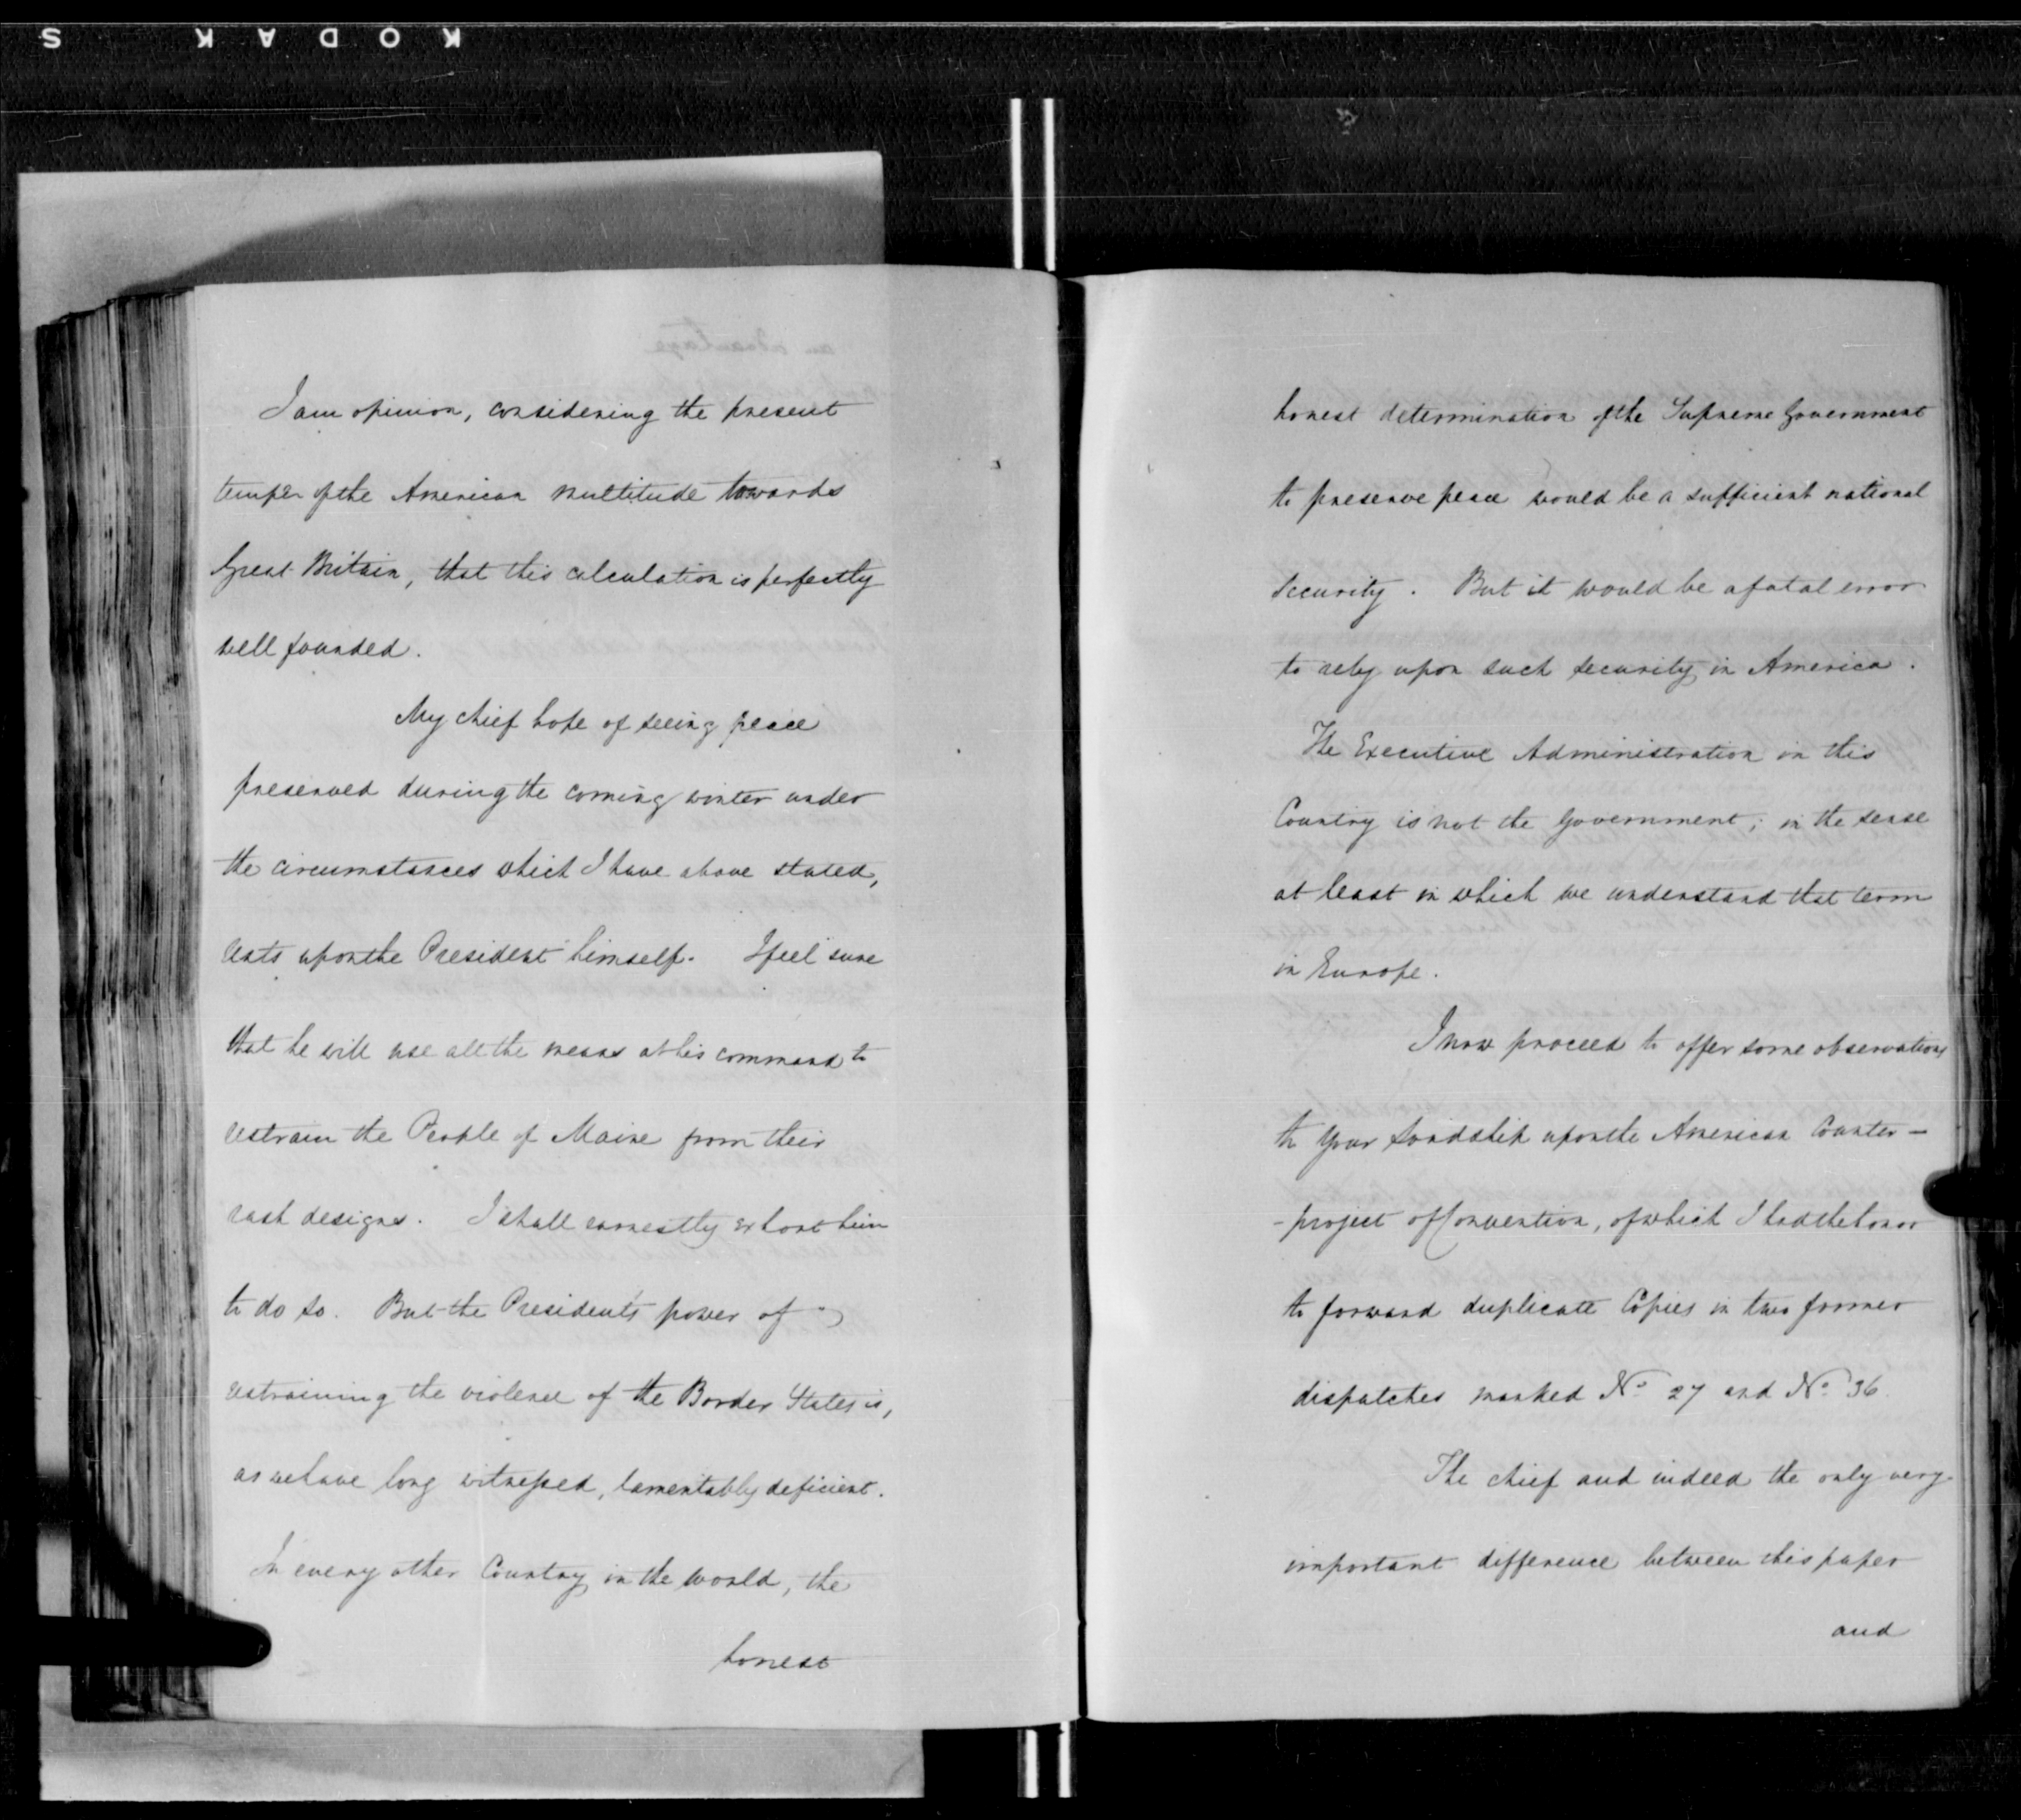 KODAK S
I am opinion, considering the present
temper of the American multitude towards
Great Britain, that this calculation is perfectly
well founded.
My chief hope of seeing peace
preserved during the coming winter under
the circumstances which I have above stated,
rests upon the President himself. I feel sure
that he will use all the means at his command to
restrain the People of Maine from their
rash designs. I shall earnestly exhort him
to do so. But the President's power of
restraining the violence of the Border States is,
as we have long witnessed, lamentably deficient.
In every other Country in the world, the
honest
honest determination of the Supreme Government
to preserve peace would be a sufficient national
Security. But it would be a fatal error
to rely upon such security in America.
The Executive Administration in this
Country is not the Government; in the sense
at least in which we understand that term
in Europe.
I now proceed to offer some observations
to Your Lordship upon the American Counter-
-project of Convention, of which I had the honor
to forward duplicate Copies in two former
dispatches marked No. 27 and No. 36.
The chief and indeed the only very
important difference between this paper
and